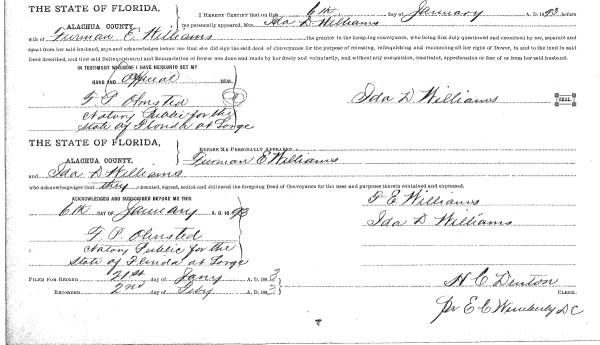 THE STATE OF FLORIDA,
ALACHUA COUNTY.
I HEREBY CERTIFY that on this 6th day of January A. D. 1893, before
me personally appeared, Mrs. Ida D Williams
wife of Furman E. Williams the grantor in the foregoing conveyance, who being first duly questioned and examined by me, separate and
apart from her said husband, says and acknowledges before me that she did sign the said deed of Conveyance for the purpose of releasing, relinquishing and renouncing all her right of Dower, in and to the land in said
Deed described, and that said Relinquishment and Renunciation of Dower was done and made by her freely and voluntarily, and without any compulsion, constraint, apprehension or fear of or from her said husband.
IN TESTIMONY WHEREOF I HAVE HEREUNTO SET MY
HAND AND Official
F P Olmsted
Ida D Williams SEAL.
Notary Public for the
State of Florida at Large
THE STATE OF FLORIDA,
ALACHUA COUNTY,
BEFORE ME PERSONALLY APPEARED
Furman E Williams
and Ida D Williams
who acknowledges that they executed, signed, sealed and delivered the foregoing Deed of Conveyance for the uses and purposes therein contained and expressed.
ACKNOWLEDGED AND SUBSCRIBED BEFORE ME THIS
6th DAY OF January A. D. 1893
F E Williams
F. P. Olmsted
Ida D Williams
Notary Public for the
State of Florida at Large
FILED FOR RECORD 21st day of Jany A. D. 1893
RECORDED 2nd day of Feby A. D. 1893
H. C. Denton CLERK.
Pr E. E Wimberly D C